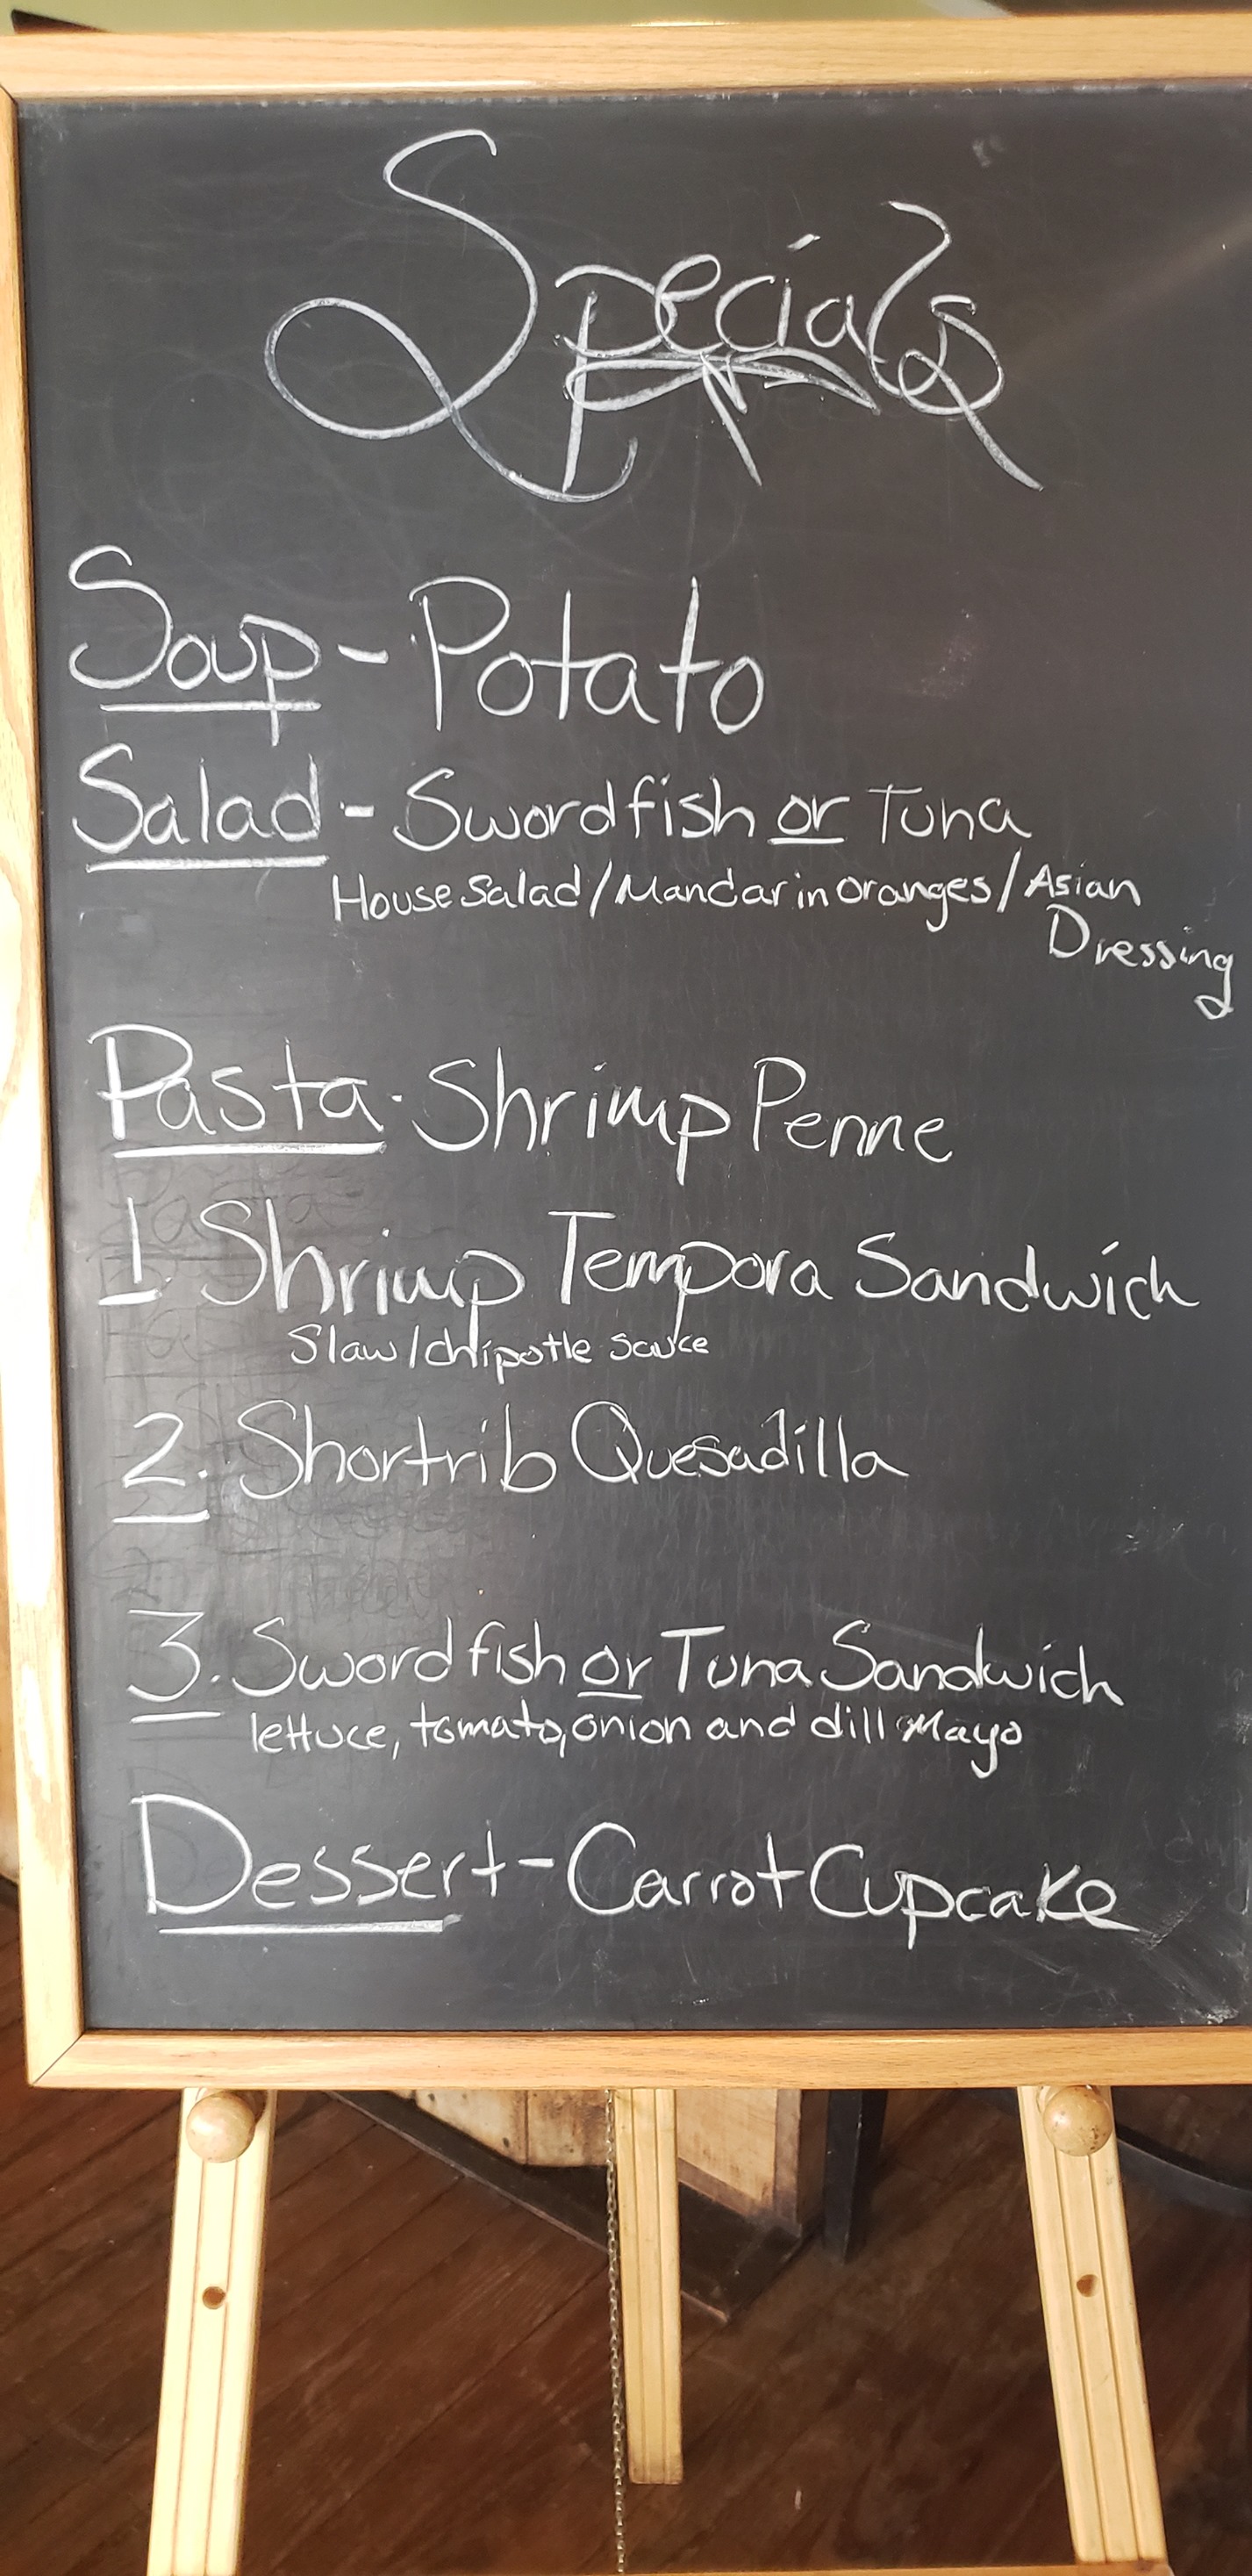 Specials
Soup - Potato
Salad - Swordfish or Tuna
House Salad / Mandarin oranges / Asian
Dressing
Pasta - Shrimp Penne
1. Shrimp Tempora Sandwich
Slaw / chipotle sauce
2. Shortrib Quesadilla
3. Swordfish or Tuna Sandwich
lettuce, tomato, onion and dill Mayo
Dessert - Carrot Cupcake